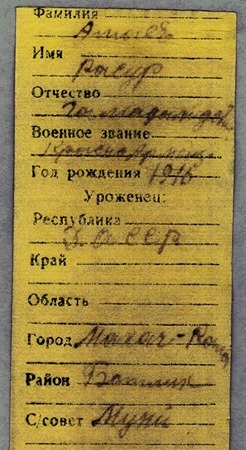 Фамилия
Алиев
Имя
Расур
Отчество
Военное звание
Красноармеец
Год рождения 1916
Уроженец:
Республика
Д.АССР
Край
Область
Город Махач-Кала
Район Ботлих
С/совет Муни